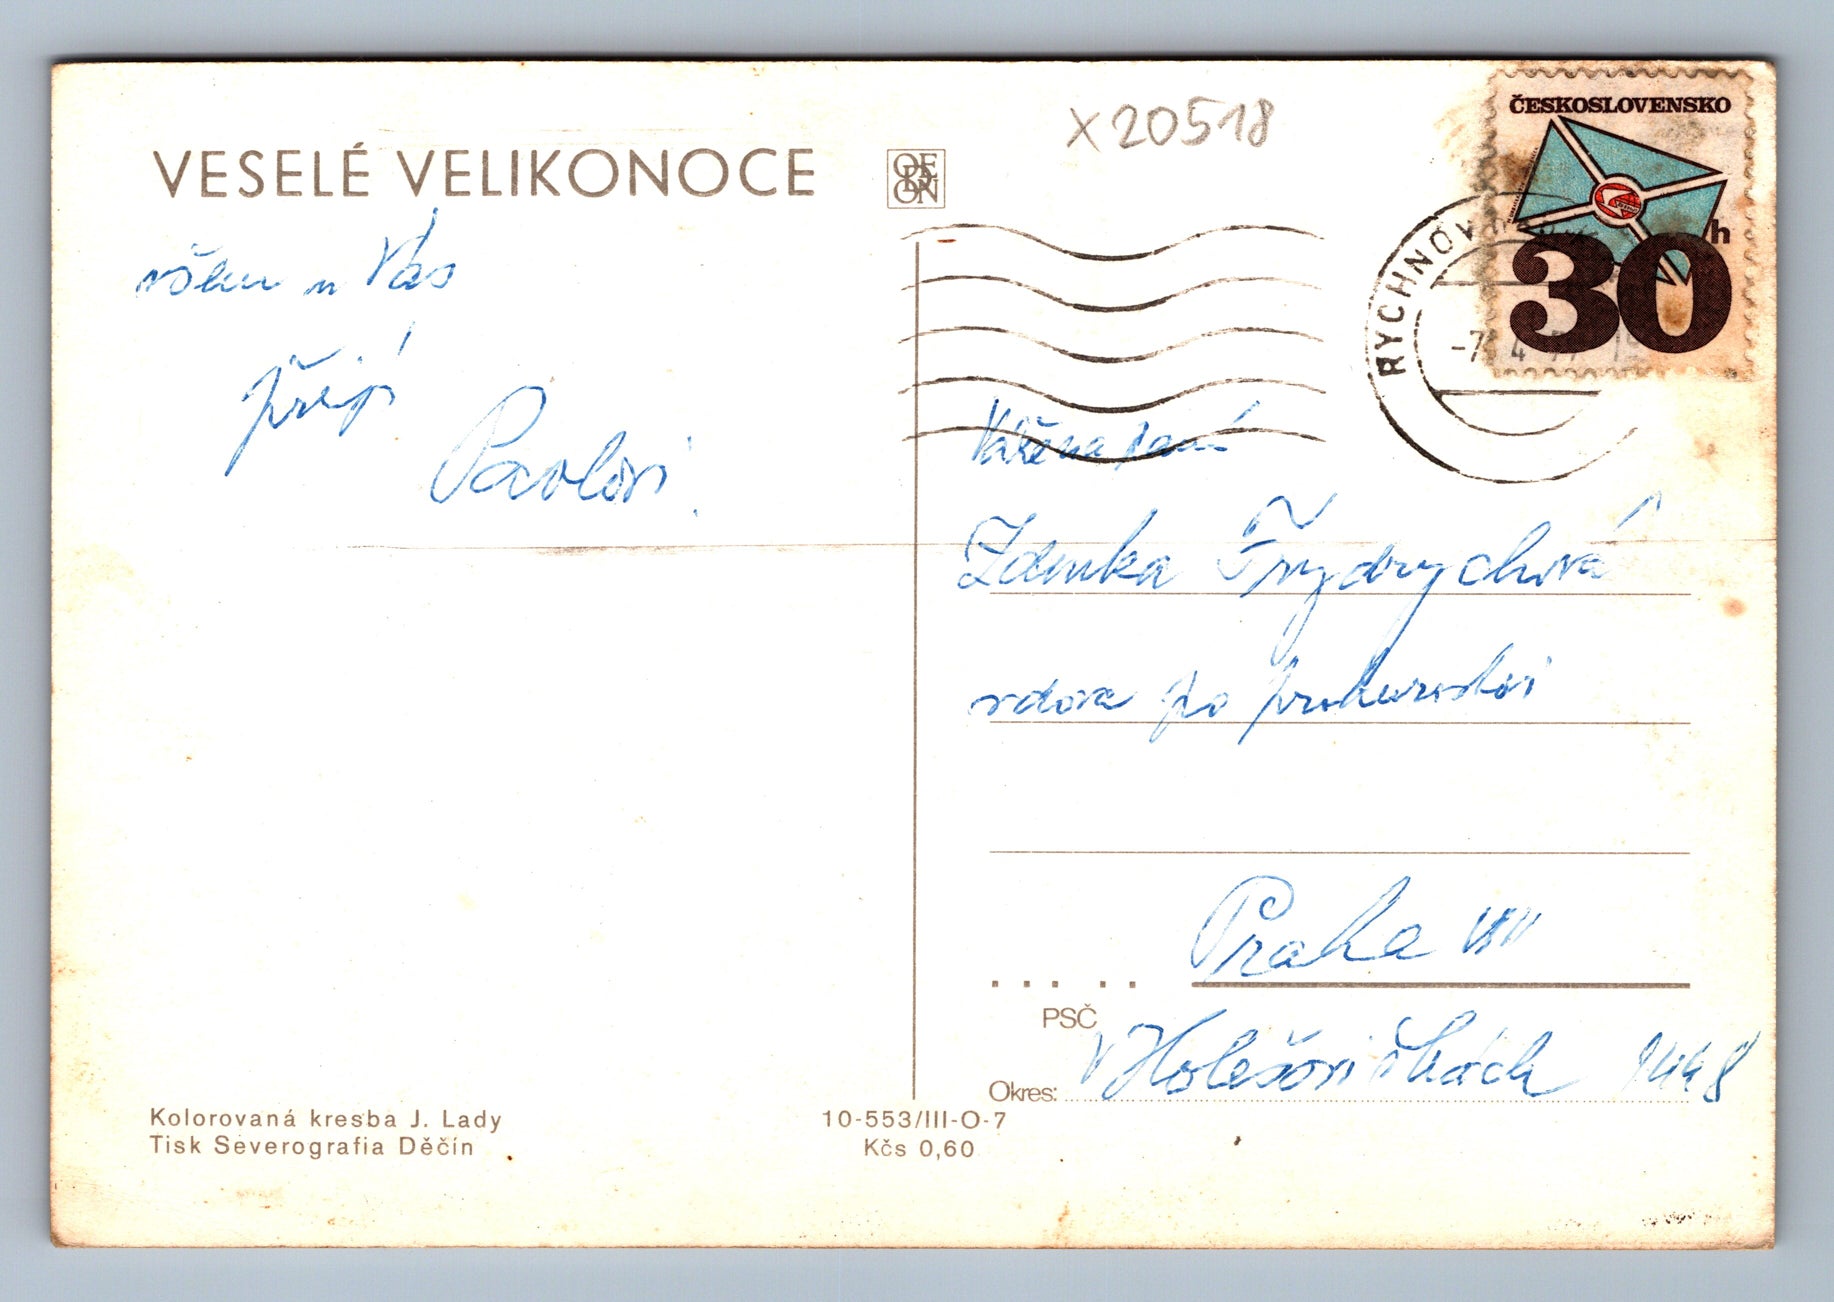 VESELÉ VELIKONOCE
ODEON
X20518
ČESKOSLOVENSKO
h
30
RYCHNOV
-7. 4. 77
všem u Vás
přejí
Pavlovi.
Vážená paní
Zdenka Frydrychová
vdova po prokuristovi
Praha VII
PSČ
v Holešovičkách
Okres:
Kolorovaná kresba J. Lady
Tisk Severografia Děčín
10-553/III-O-7
Kčs 0,60